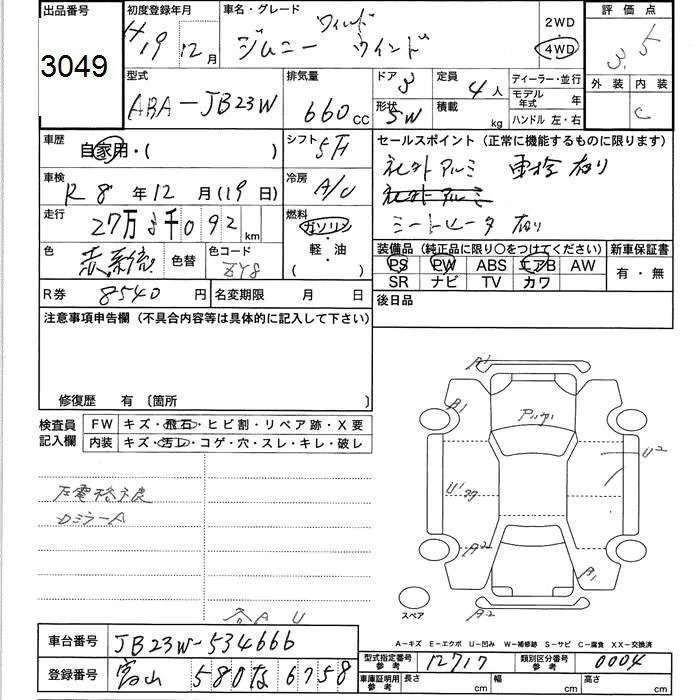 出品番号 初度登録年月 車名・グレード ワイルド 2WD 評価点
3049 H19 12月 ジムニー ウインド 4WD 3.5
型式 排気量 ドア 3 定員 4人 ディーラー・並行 外装 内装
ABA-JB23W 660cc 形状 SW 積載 kg モデル年式 年 C
ハンドル 左・右
車歴 自家用・( ) シフト 5F セールスポイント(正常に機能するものに限ります)
車検 R8年12月(19日) 冷房 A/C 社外アルミ 電格有り
社外アルミ
走行 27万3千092km 燃料 ガソリン シートヒータ有り
軽・油
( )
色 赤系 色替 色コード ZY8 装備品(純正品に限り○をつけてください) 新車保証書
PS PW ABS エアB AW 有・無
SR ナビ TV カワ
R券 8540円 名変期限 月 日 後日品
注意事項申告欄(不具合内容等は具体的に記入して下さい)
修復歴 有〔箇所 〕
検査員記入欄 FW キズ・飛石・ヒビ割・リペア跡・X要
内装 キズ・汚レ・コゲ・穴・スレ・キレ・破レ
左電格不良
ロミラーA
各A U
A1
A1
U2
U1
A2
B1
A2
スペア
A-キズ E-エクボ U-凹み W-補修跡 S-サビ C-腐食 XX-交換済
車台番号 JB23W-534666 型式指定番号 参考 12717 類別区分番号 参考 0004
登録番号 富山 580 な 6758 車庫証明用 参考 長さ cm 幅 cm 高さ cm